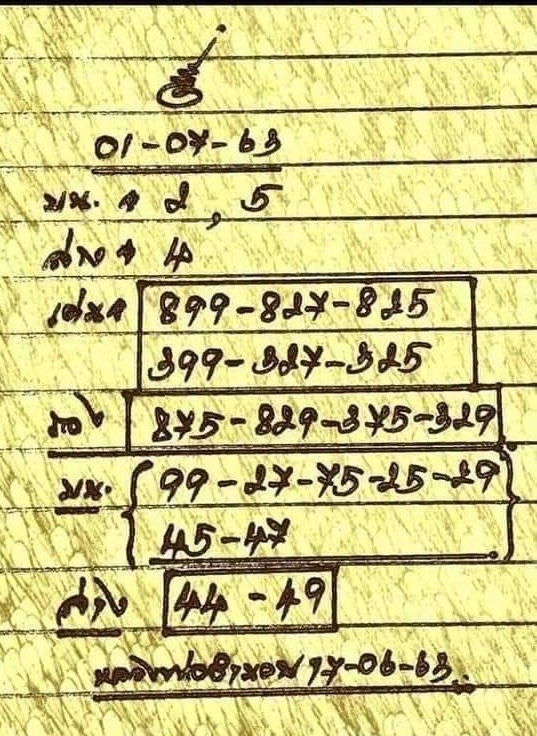 01-07-63
บน. จ 2, 5
ล่าง จ 4
เด่นๆ 899-827-825
399-327-325
รอง 875-829-375-329
บน. 99-27-75-25-29
45-47
ล่าง 44-49
17-06-63